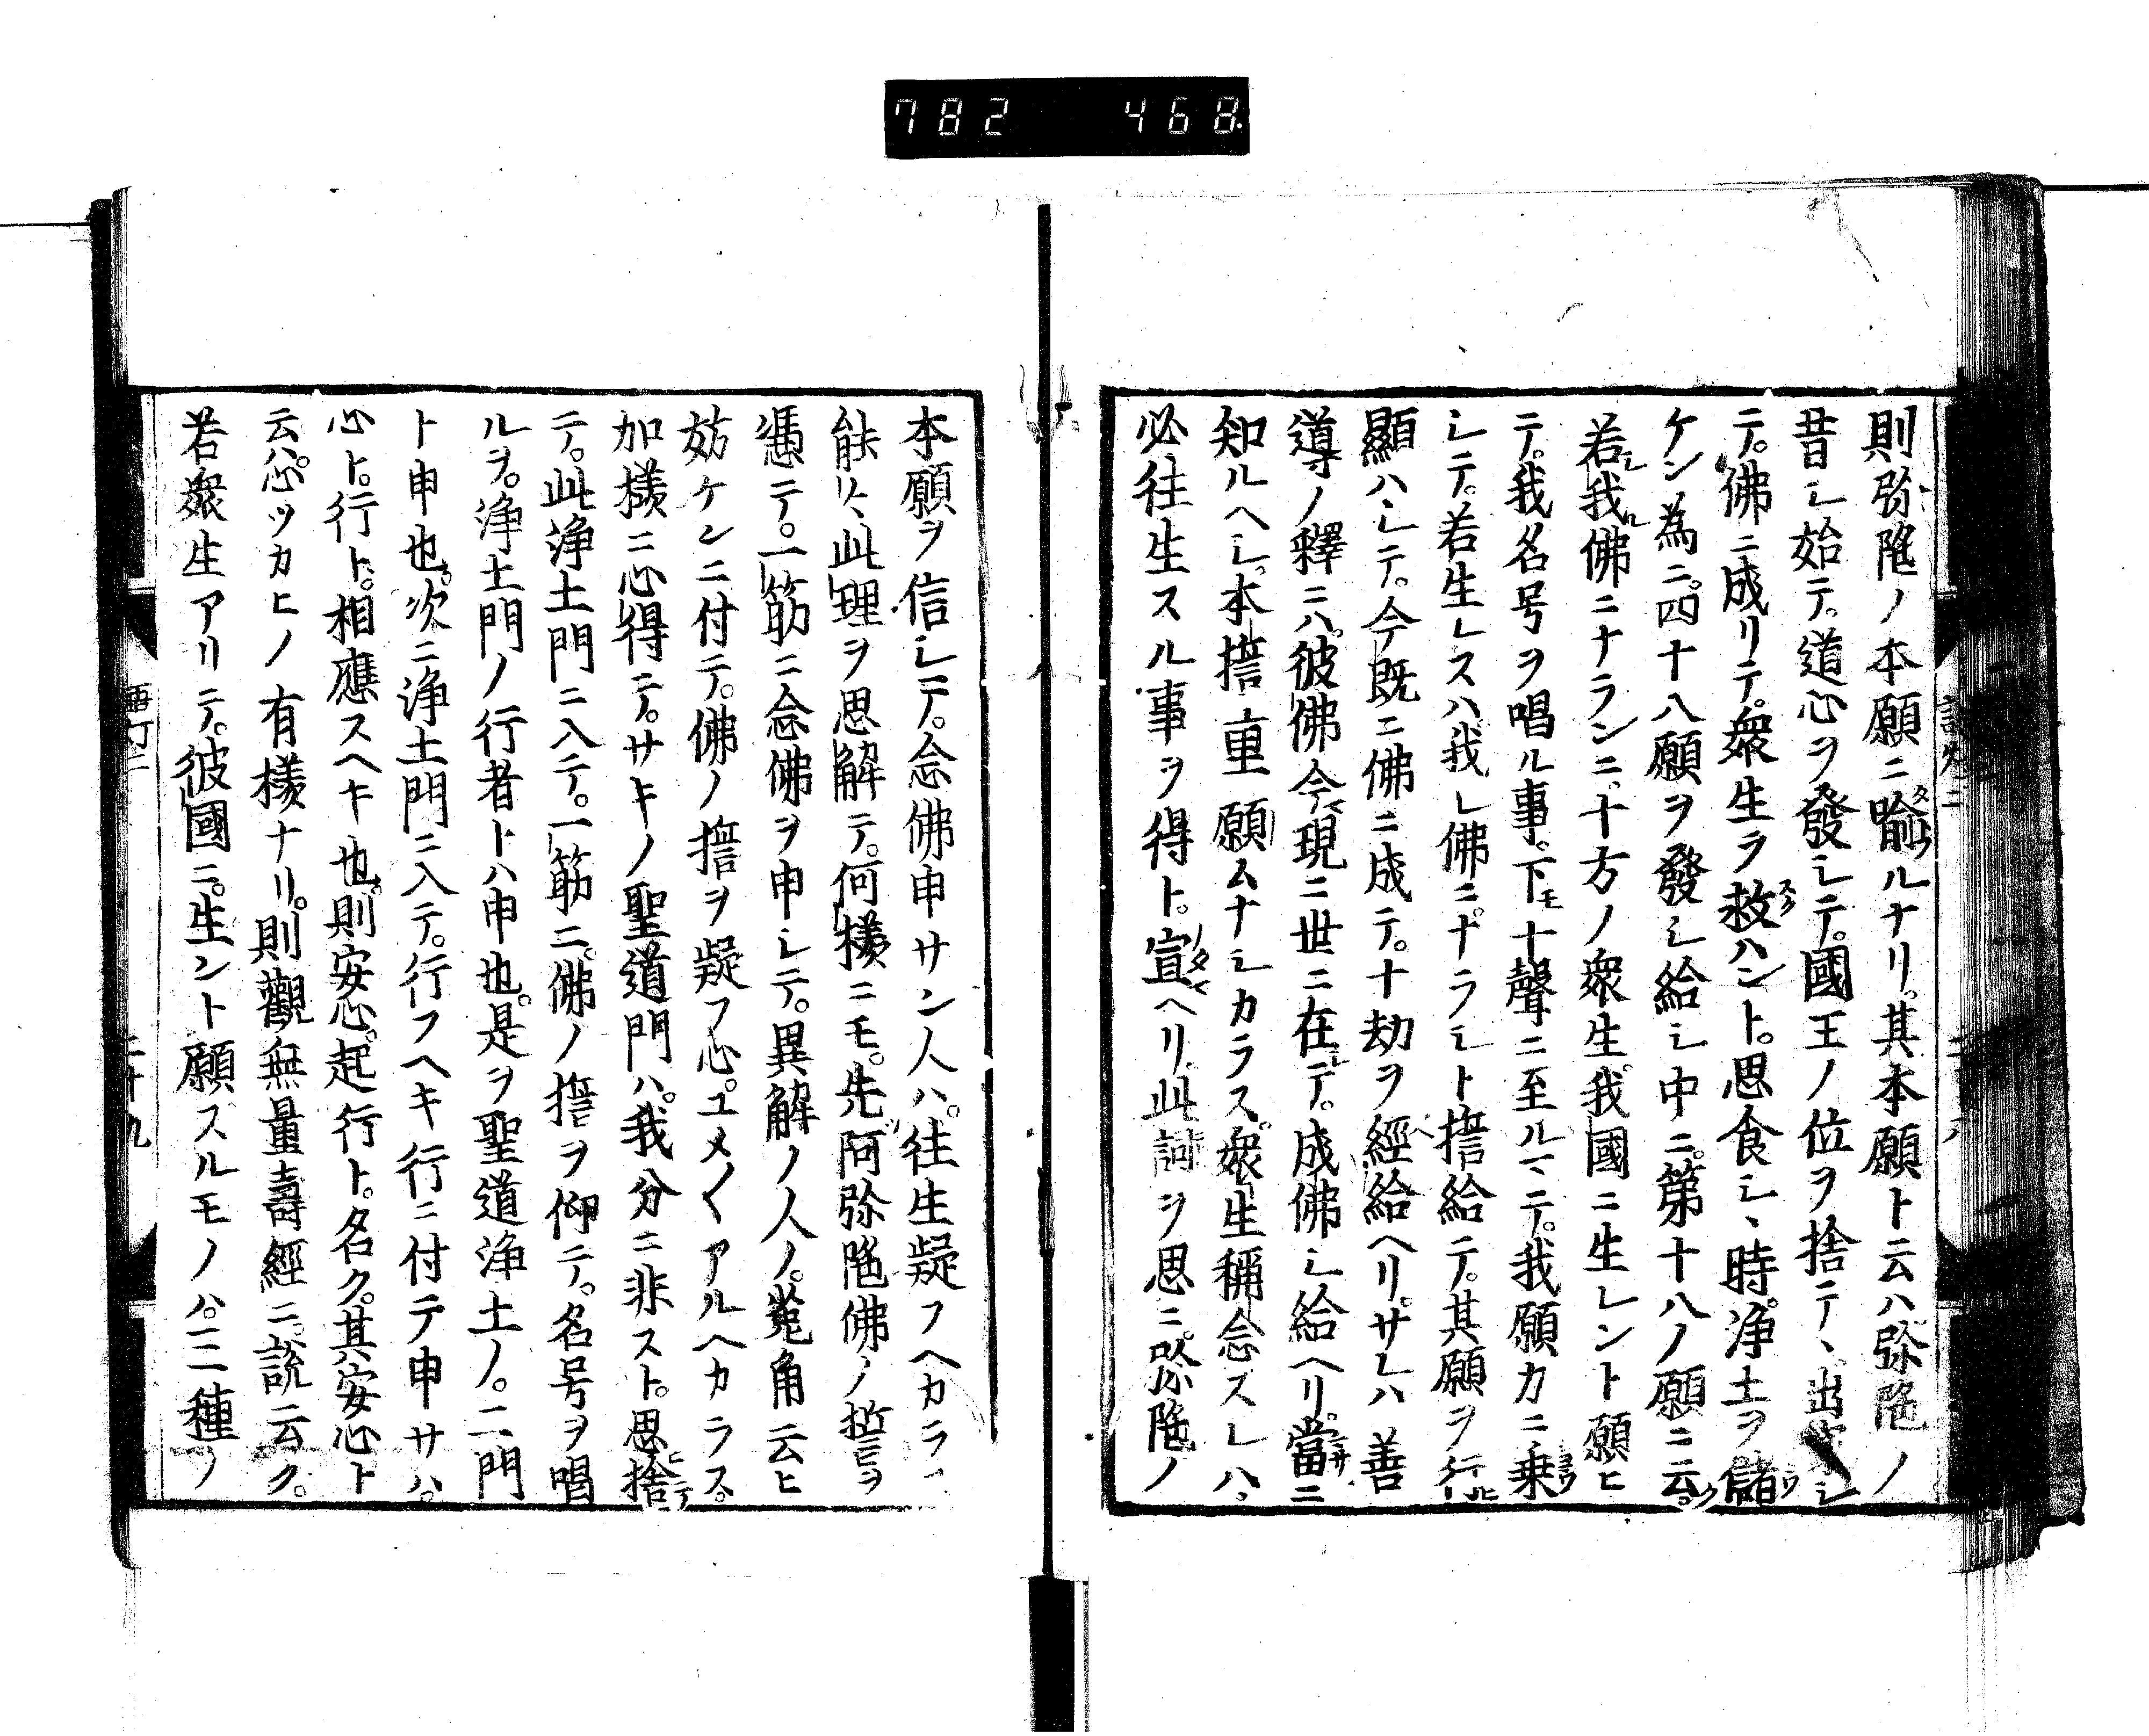 782 468
則弥陀ノ本願ニ喩ルナリ。其本願ト云ハ弥陀ノ
昔シ始テ。道心ヲ發シテ。國王ノ位ヲ捨テヽ出家シ
テ。佛ニ成リテ。衆生ヲ救ハント。思食シヽ時。浄土ヲ儲
ケン為ニ。四十八願ヲ發シ給シ中ニ。第十八ノ願ニ云。
若我佛ニナランニ、十方ノ衆生。我國ニ生レント願ヒ
テ。我名号ヲ唱ル事、下モ十聲ニ至ルマテ。我願力ニ乗
シテ。若生レスハ我レ佛ニナラシト誓給テ。其願ヲ行
顯ハシテ。今既ニ佛ニ成テ。十劫ヲ經給ヘリ。サレハ善
導ノ釋ニハ。彼佛今現ニ世ニ在テ。成佛シ給ヘリ。當ニ
知ルヘシ。本誓重願ムナシカラス。衆生稱念スレハ。
必往生スル事ヲ得ト。宣ヘリ。此詞ヲ思ニ。弥陀ノ
本願ヲ信シテ。念佛申サン人ハ。往生疑フヘカラ
能々此理ヲ思解テ。何様ニモ。先阿弥陀佛ノ誓ヲ
憑テ。一筋ニ念佛ヲ申シテ。異解ノ人ノ。菟角云ヒ
妨ケンニ付テ。佛ノ誓ヲ疑フ心。ユメ〱アルヘカラス。
加様ニ心得テ。サキノ聖道門ハ。我分ニ非スト。思捨
テ。此浄土門ニ入テ。一筋ニ。佛ノ誓ヲ仰テ。名号ヲ唱
ルヲ。浄土門ノ行者トハ申也。是ヲ聖道浄土ノ。二門
ト申也。次ニ浄土門ニ入テ。行フヘキ行ニ付テ申サハ。
心ト。行ト。相應スヘキ也。則安心。起行ト。名ク。其安心ト
云ハ。心ツカヒノ有様ナリ。則觀無量壽經ニ。説云ク。
若衆生アリテ。彼國ニ。生ント願スルモノハ。三種ノ